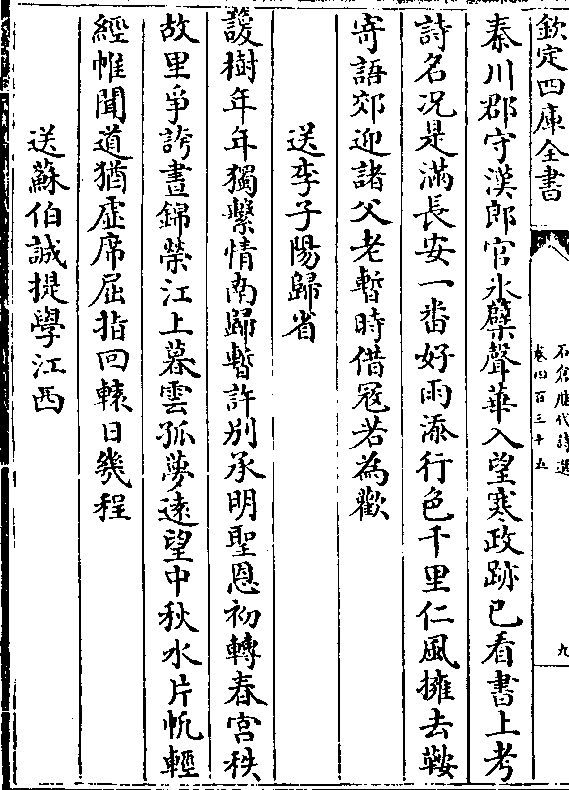 欽定四庫全書
石倉歷代詩選
卷四百三十五
九
秦川郡守漢郎官氷蘖聲華入望寒政跡已看書上考
詩名况是滿長安一番好雨添行色千里仁風擁去鞍
寄語郊迎諸父老暫時借冦若為歡
送李子陽歸省
護樹年年獨繫情南歸暫許别承明聖恩初轉春宮秩
故里爭誇晝錦榮江上暮雲孤夢遠望中秋水片帆輕
經帷聞道猶虛席屈指回轅日幾程
送蘇伯誠提學江西